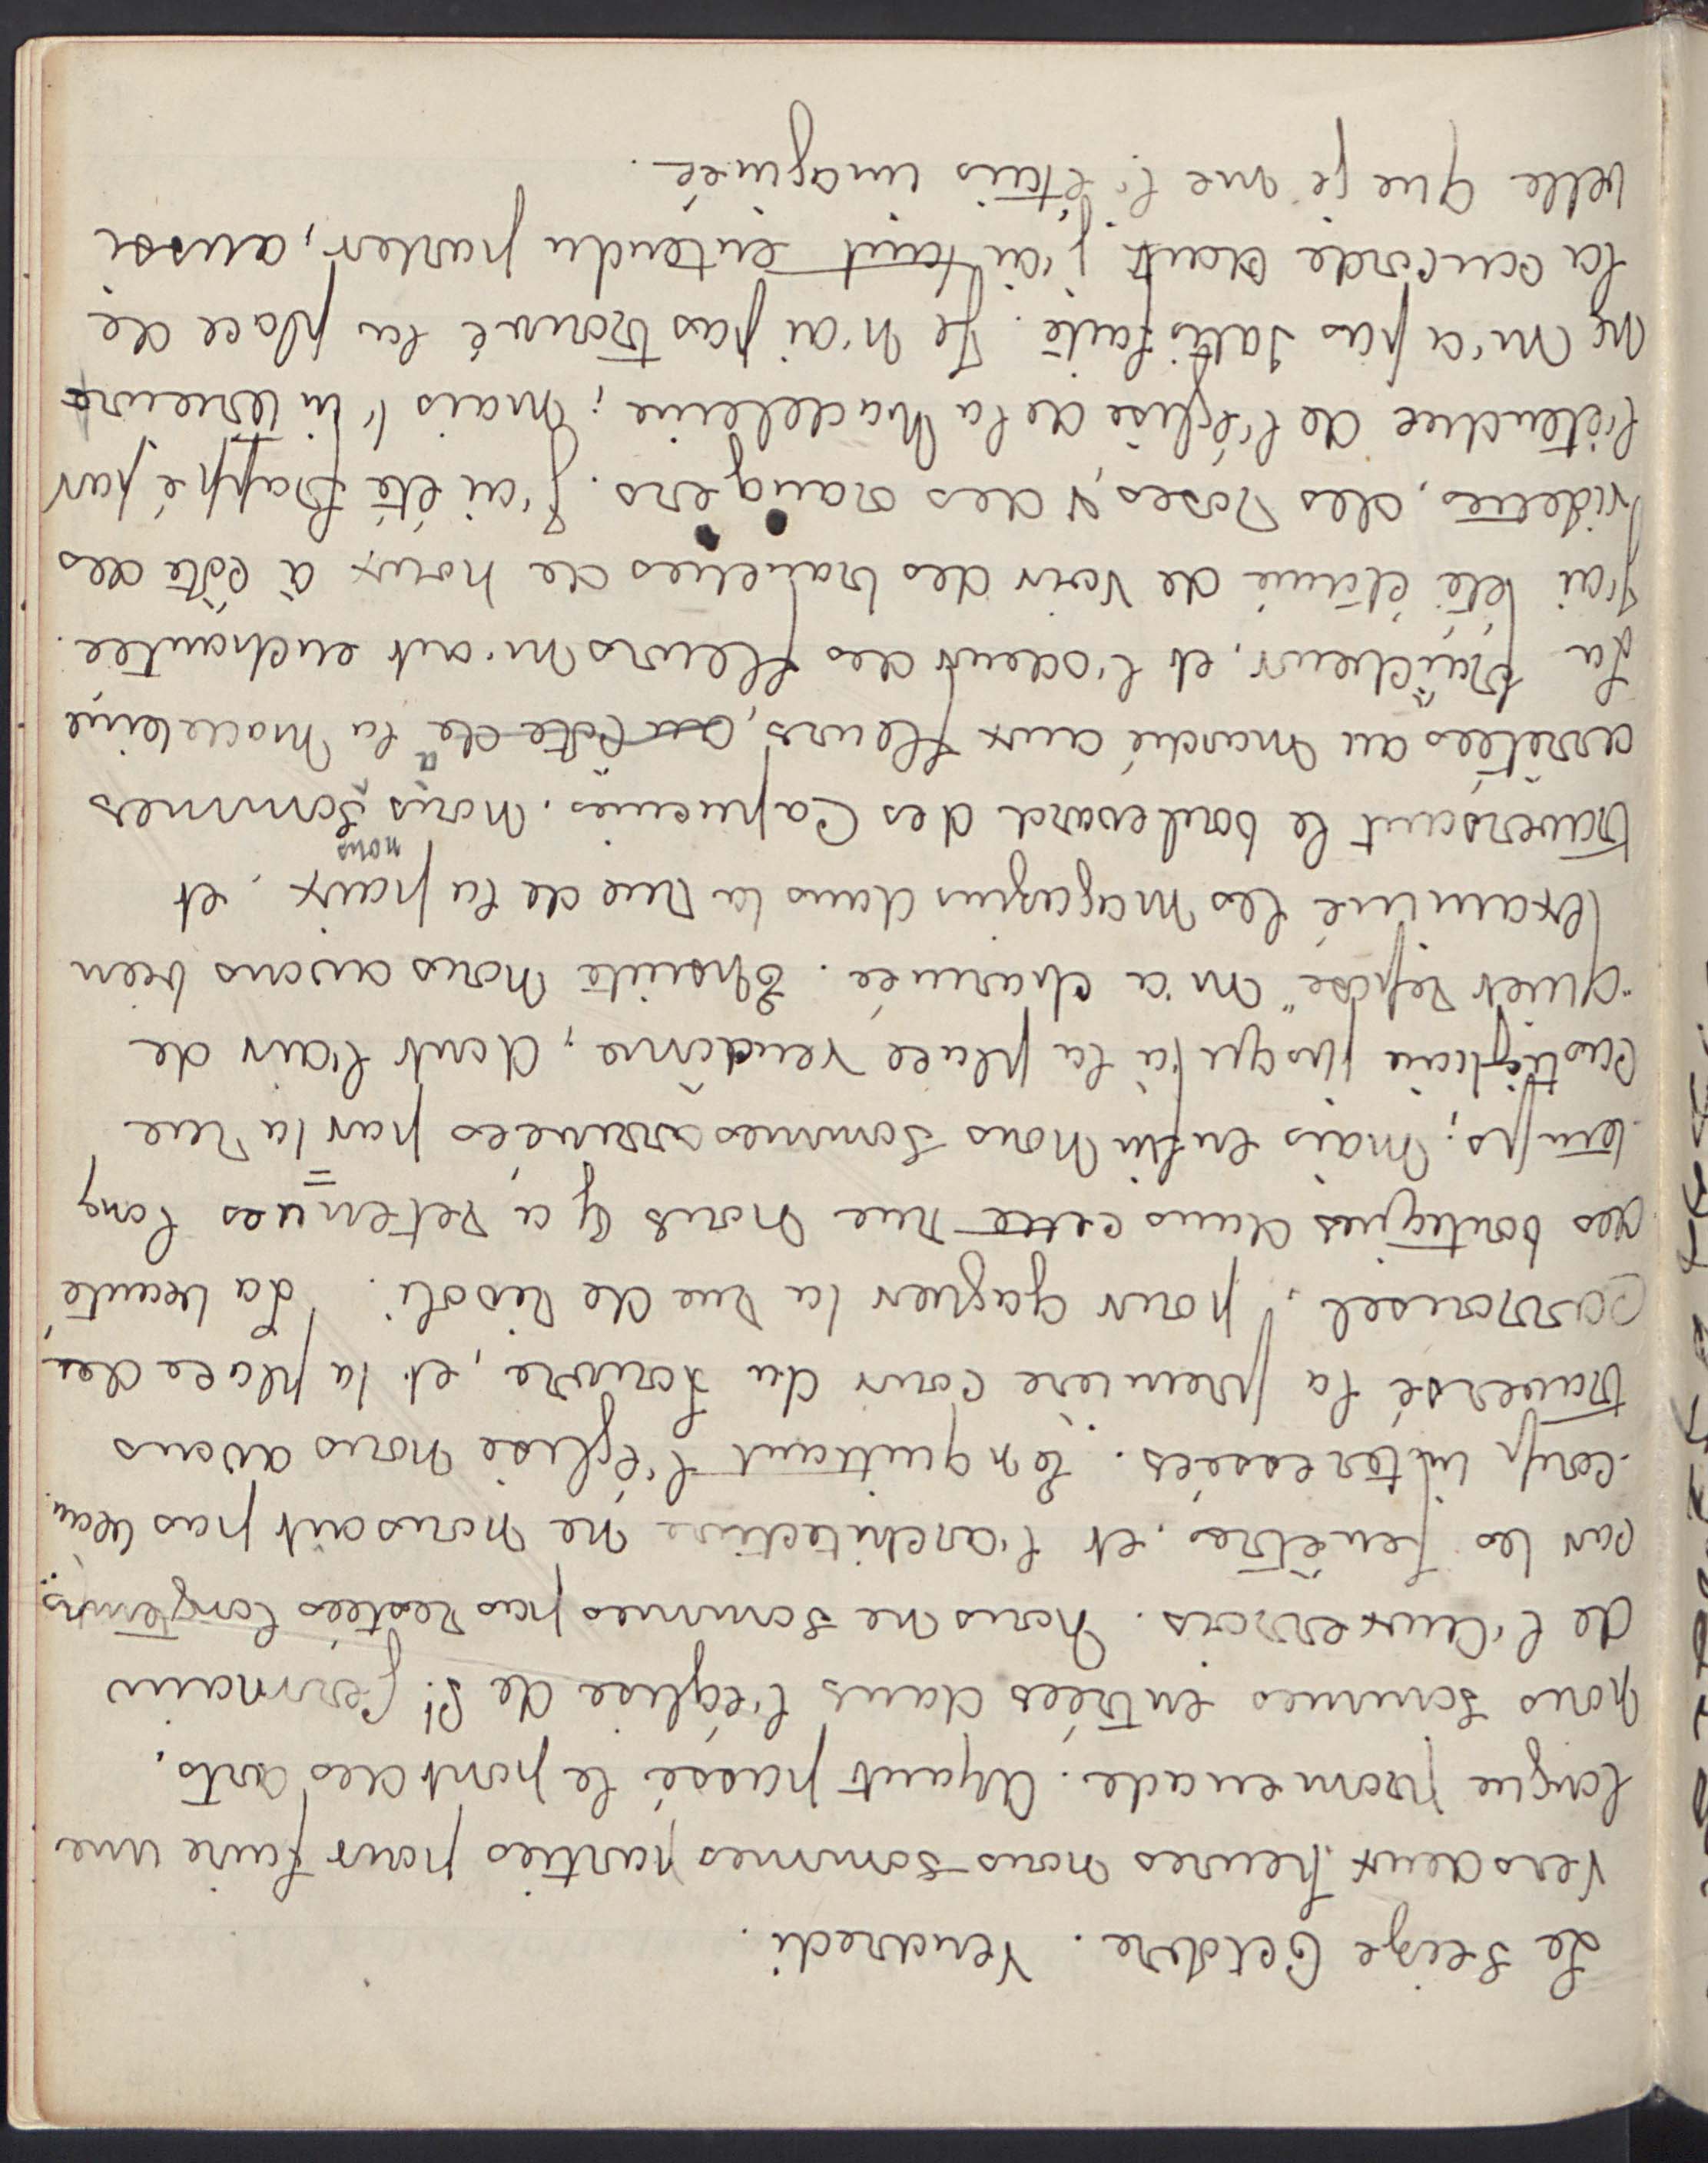 Le Seize Octobre. Vendredi.
Vers deux heures nous sommes parties pour faire une
longue promenade. Ayant passé le pont des Arts,
nous sommes entrées dans l'église de St. Germain
de l'Auxerrois. Nous ne sommes pas restées longtemps,
car les fenêtres, et l'architecture ne nous ont pas beau-
-coup intéressées. En quittant l'église nous avons
traversé la première cour du Louvre, et la place du
Carrousel, pour gagner la rue de Rivoli. La beauté
des boutiques dans cette rue nous y a retenues long
-temps; mais enfin nous sommes arrivées par la rue
Castiglione jusqu'à la place Vendôme, dont l'air de
"quiet repose" m'a charmée. Ensuite nous avons bien
examiné les magazins dans la rue de la paix, et
traversant le boulevard des Capucines, nous nous sommes
arretées au marché aux fleurs, au côté de à la Madeleine
La fraîcheur, et l'odeur des fleurs m'ont enchantée.
J'ai été étonné de voir des branches de houx à côté des
violettes, des roses, & des orangers. J'ai été frappé par
l'étendue de l'église de la Madeleine; mais l'intérieure
ne m'a pas satisfaite. Je n'ai pas trouvé la place de
la concorde dont j'ai tant entendu parler, aussi
belle que je me l'étais imaginée.